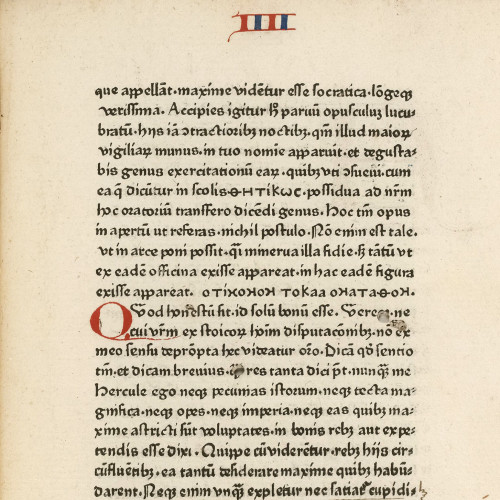 IIII
que appellãt·maxime vidẽtur esse socratica·lõgeqꝫ
verissima. Accipies igitur hͦ paruũ opusculuꝫ lucu
bratũ·hijs iã ↄtractioribꝫ noctibꝫ·qm̃ illud maioꝝ
vigiliaꝝ munus·in tuo nomĩe apparuit·et degusta-
bis genus exercitationũ eaꝝ·quibꝫ vti ↄsueui·cum
ea q̃ dicũtur in scolis ΘΗΤΙΚΩϹ·possidua ad nr̃m
hoc oratoriũ transfero dicẽdi genus. Hoc tm̃ opus
in apertũ vt referas·nichil postulo. Nõ enim est tale·
vt in arce poni possit·q̃ minerua illa fidie·ꝫ tãtũ vt
ex eadẽ officina exisse appareat·in hac eadẽ figura
exisse appareat. ΟΤΙΚΟΝΟΗ ΤΟΚΑΑ ΟΝΑΤΑΘΟΗ·
QVod honestũ sit·id solũ bonũ esse. Vereor·ne
cui vr̃m ex stoicoꝝ hoĩm disputacõnibꝫ·nõ ex
meo sensu deprõpta hec videatur orõ. Dicã qd̕ sentio
tm̃·et dicam breuius·q̃ res tanta dici pt̃·nunqꝫ me
Hercule ego neqꝫ pecunias istorum·neqꝫ tecta ma-
gnifica·neqꝫ opes·neqꝫ imperia·neqꝫ eas quibꝫ ma-
xime astricti sũt voluptates·in bonis rebꝫ aut expe-
tendis esse dixi. Quippe cũ viderẽtur·rebꝫ hijs cir-
cũfluẽtibꝫ·ea tantũ desiderare maxime quibꝫ habũ-
darent. Neqꝫ enim vnqꝫ expletur nec satiat̃ cupidi-